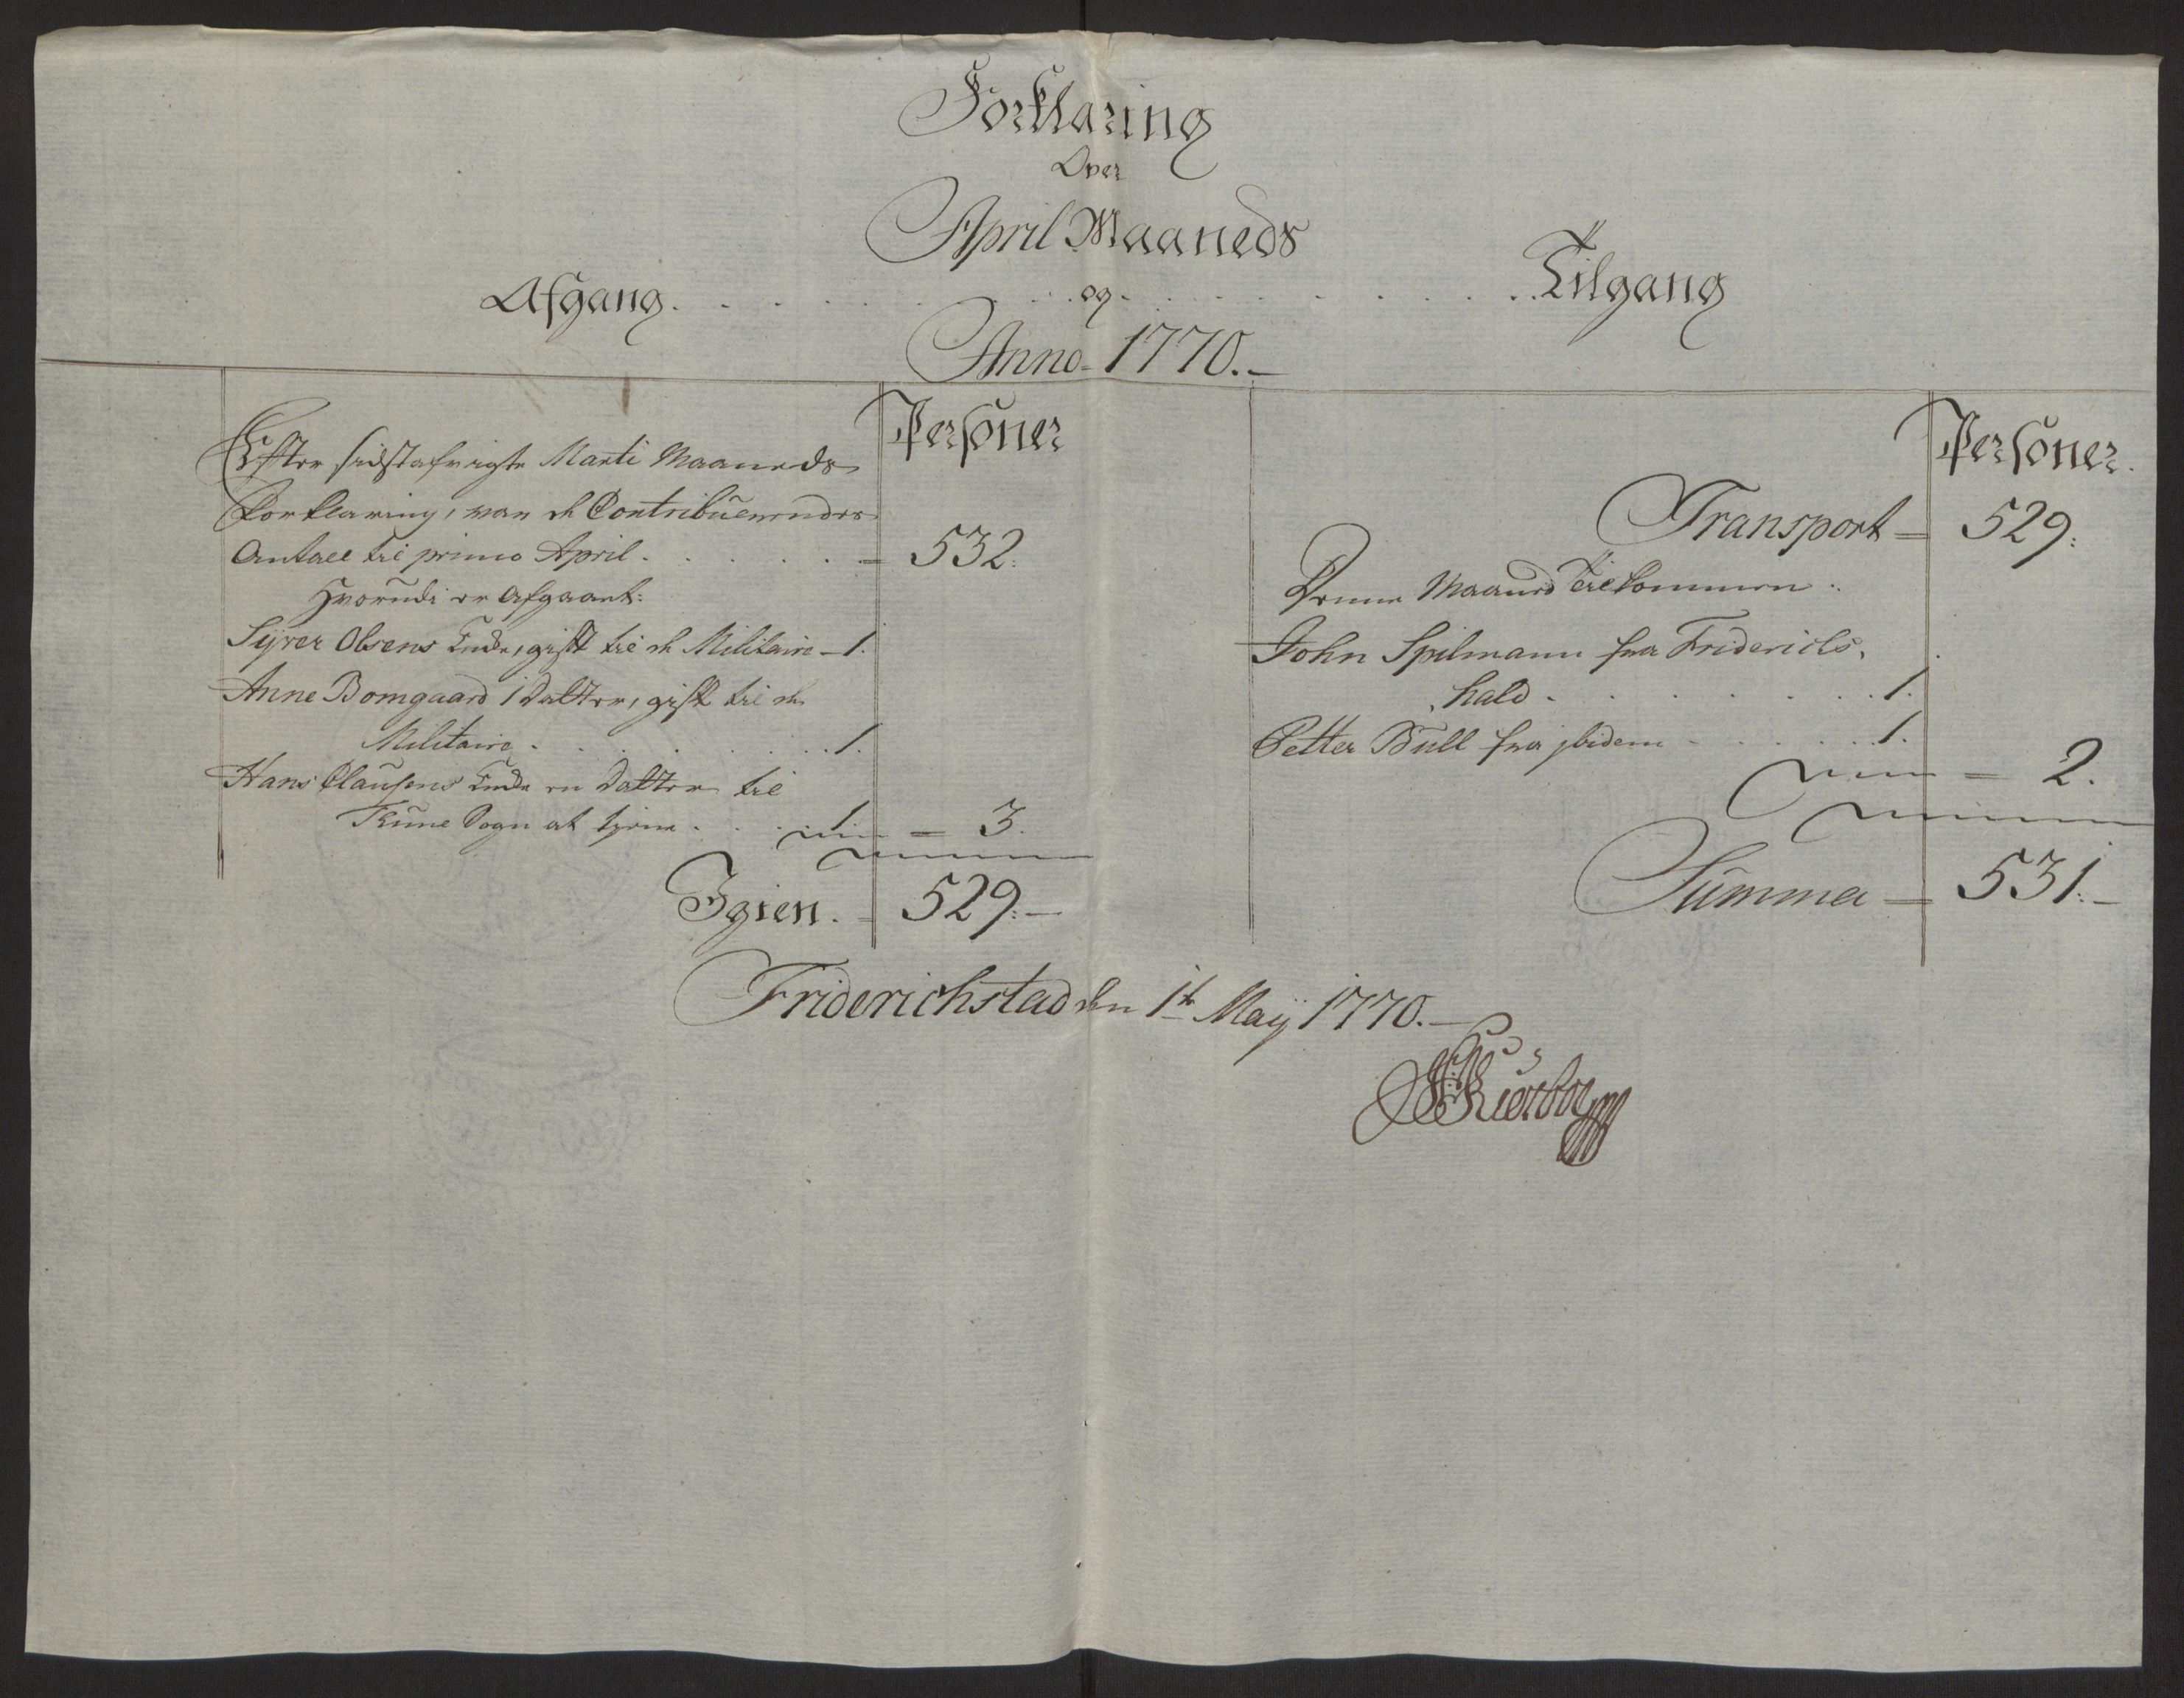 Forklaring
Over
April Maaneds
Afgang . . . . . . og . . . . . . . . Tilgang
Anno 1770.
Personer
Efter sidstafvigte Marti Maaneds
Forklaring, var de Contribuerendes
Antall til primo April . . . . . = 532.
Hvorudi er Afgaaet:
Syver Olsens Enke, gift til de Militaire - 1.
Anne Bomgaard 1 Datter, gift til de
Militaire . . . . . . . 1.
Hans Clausens Enke en Datter til
Tune Sogn at tiene . . . 1. = 3.
Igien. = 529.
Personer.
Transport = 529:
Denne Maaned Tilkommen.
John Spilmann fra Friderichs,
hald . . . . . . . . 1.
Petter Bull fra ibidem . . . . . 1.
= 2.
Summa = 531.
Friderichstad den 1te Maij 1770.